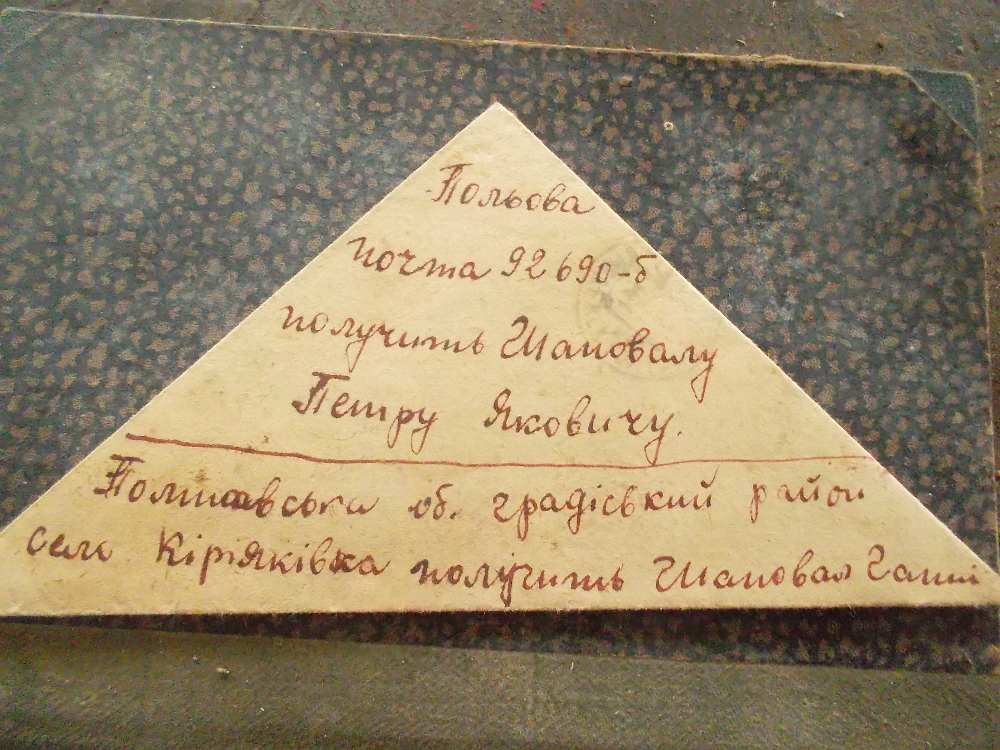 Польова
почта 92690-б
получить Шаповалу
Петру Яковичу.
Полтавська об. градіський район
село Кіріяківка получить Шаповал Гашці